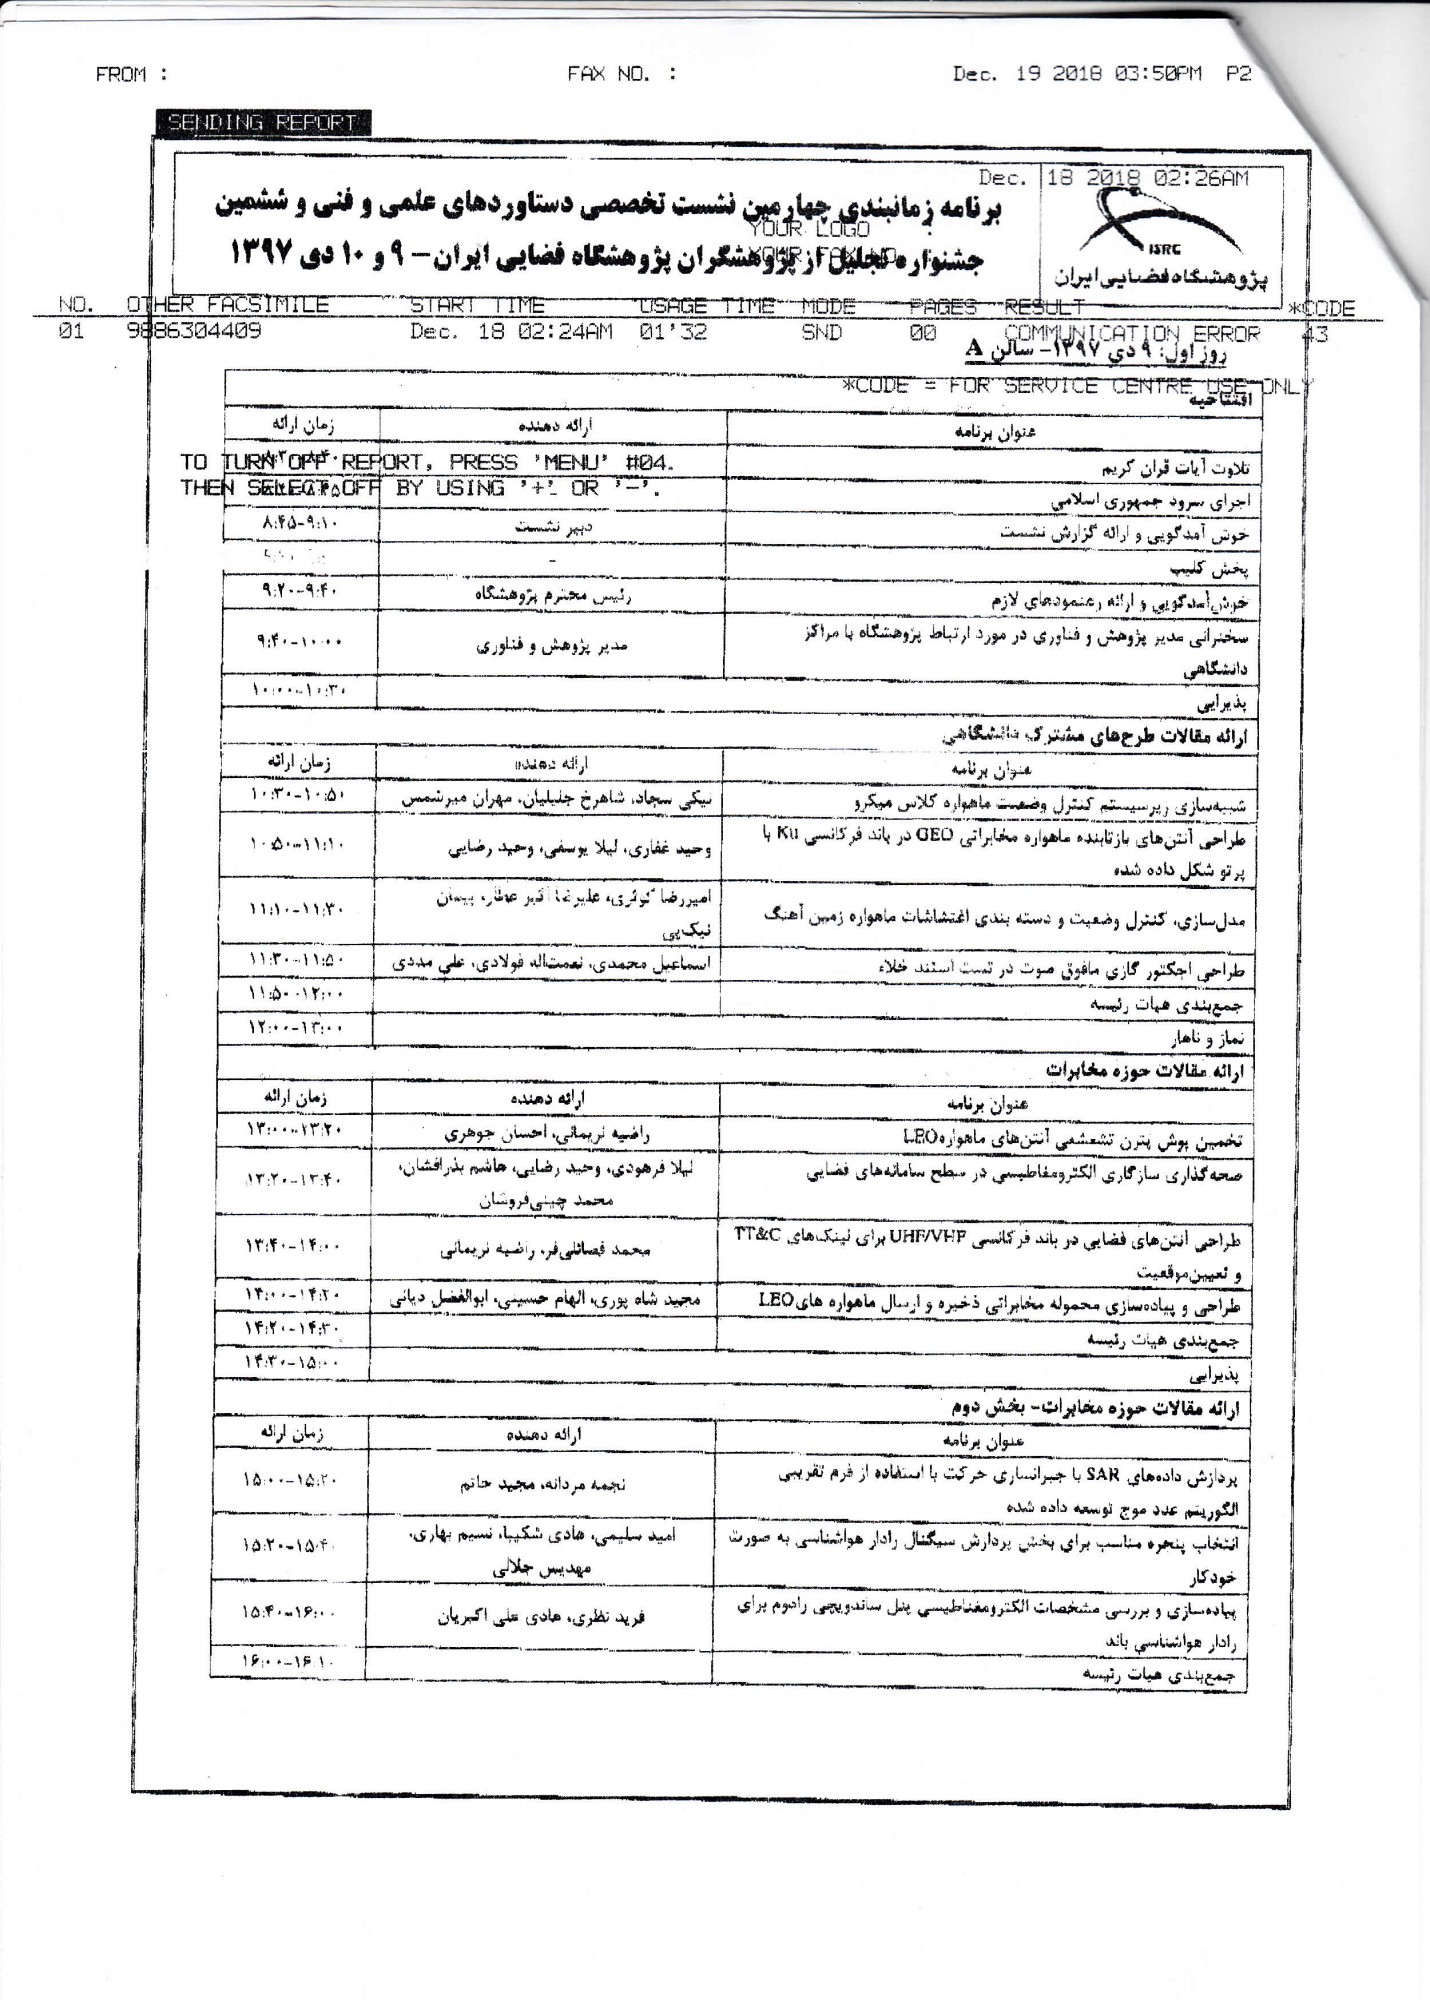 FROM :
FAX NO. :
Dec. 19 2018 03:50PM P2
SENDING REPORT
Dec. 18 2018 02:26AM
برنامه زمانبندی چهارمین نشست تخصصی دستاوردهای علمی و فنی و ششمین
YOUR LOGO
جشنواره تجلیل از پژوهشگران پژوهشگاه فضایی ایران – ۹ و ۱۰ دی ۱۳۹۷
YOUR FAX NO.
ISRC
پژوهشگاه فضایی ایران
NO. OTHER FACSIMILE START TIME USAGE TIME MODE PAGES RESULT *CODE
01 9886304409 Dec. 18 02:24AM 01'32 SND 00 COMMUNICATION ERROR 43
روز اول: ۹ دی ۱۳۹۷– سالن A
*CODE = FOR SERVICE CENTRE USE ONLY
افتتاحیه
عنوان برنامه ارائه دهنده زمان ارائه
تلاوت آیات قران کریم
TO TURN OFF REPORT, PRESS 'MENU' #04.
THEN SELECT OFF BY USING '+' OR '-'.
اجرای سرود جمهوری اسلامی
خوش آمدگویی و ارائه گزارش نشست دبیر نشست ۸:۴۵-۹:۱۰
پخش کلیپ -
خوش‌آمدگویی و ارائه رهنمودهای لازم رئیس محترم پژوهشگاه ۹:۲۰-۹:۴۰
سخنرانی مدیر پژوهش و فناوری در مورد ارتباط پژوهشگاه با مراکز
دانشگاهی مدیر پژوهش و فناوری ۹:۴۰-۱۰:۰۰
پذیرایی ۱۰:۰۰-۱۰:۳۰
ارائه مقالات طرح‌های مشترک دانشگاهی
عنوان برنامه ارائه دهنده زمان ارائه
شبیه‌سازی زیرسیستم کنترل وضعیت ماهواره کلاس میکرو نیکی سجاد، شاهرخ جلیلیان، مهران میرشمس ۱۰:۳۰-۱۰:۵۰
طراحی آنتن‌های بازتابنده ماهواره مخابراتی GEO در باند فرکانسی Ku با
پرتو شکل داده شده وحید غفاری، لیلا یوسفی، وحید رضایی ۱۰:۵۰-۱۱:۱۰
مدل‌سازی، کنترل وضعیت و دسته بندی اغتشاشات ماهواره زمین آهنگ امیررضا کوثری، علیرضا اکبر عطار، پیمان
نیک‌پی ۱۱:۱۰-۱۱:۳۰
طراحی اجکتور گازی مافوق صوت در تست استند خلاء اسماعیل محمدی، نعمت‌اله فولادی، علی مددی ۱۱:۳۰-۱۱:۵۰
جمع‌بندی هیات رئیسه ۱۱:۵۰-۱۲:۰۰
نماز و ناهار ۱۲:۰۰-۱۳:۰۰
ارائه مقالات حوزه مخابرات
عنوان برنامه ارائه دهنده زمان ارائه
تخمین پوش پترن تشعشعی آنتن‌های ماهواره LEO راضیه نریمانی، احسان جوهری ۱۳:۰۰-۱۳:۲۰
صحه‌گذاری سازگاری الکترومغاطیسی در سطح سامانه‌های فضایی لیلا فرهودی، وحید رضایی، هاشم بذرافشان،
محمد چینی‌فروشان ۱۳:۲۰-۱۳:۴۰
طراحی آنتن‌های فضایی در باند فرکانسی UHF/VHF برای لینک‌های TT&C
و تعیین‌موقعیت محمد فضائلی‌فر، راضیه نریمانی ۱۳:۴۰-۱۴:۰۰
طراحی و پیاده‌سازی محموله مخابراتی ذخیره و ارسال ماهواره های LEO مجید شاه پوری، الهام حسینی، ابوالفضل دیانی ۱۴:۰۰-۱۴:۲۰
جمع‌بندی هیات رئیسه ۱۴:۲۰-۱۴:۳۰
پذیرایی ۱۴:۳۰-۱۵:۰۰
ارائه مقالات حوزه مخابرات- بخش دوم
عنوان برنامه ارائه دهنده زمان ارائه
پردازش داده‌های SAR با جبرانسازی حرکت با استفاده از فرم تقریبی
الگوریتم عدد موج توسعه داده شده نجمه مردانه، مجید حاتم ۱۵:۰۰-۱۵:۲۰
انتخاب پنجره مناسب برای بخش پردازش سیگنال رادار هواشناسی به صورت
خودکار امید سلیمی، هادی شکیبا، نسیم بهاری،
مهدیس جلالی ۱۵:۲۰-۱۵:۴۰
پیاده‌سازی و بررسی مشخصات الکترومغناطیسی پنل ساندویچی رادوم برای
رادار هواشناسی باند فرید نظری، هادی علی اکبریان ۱۵:۴۰-۱۶:۰۰
جمع‌بندی هیات رئیسه ۱۶:۰۰-۱۶:۱۰